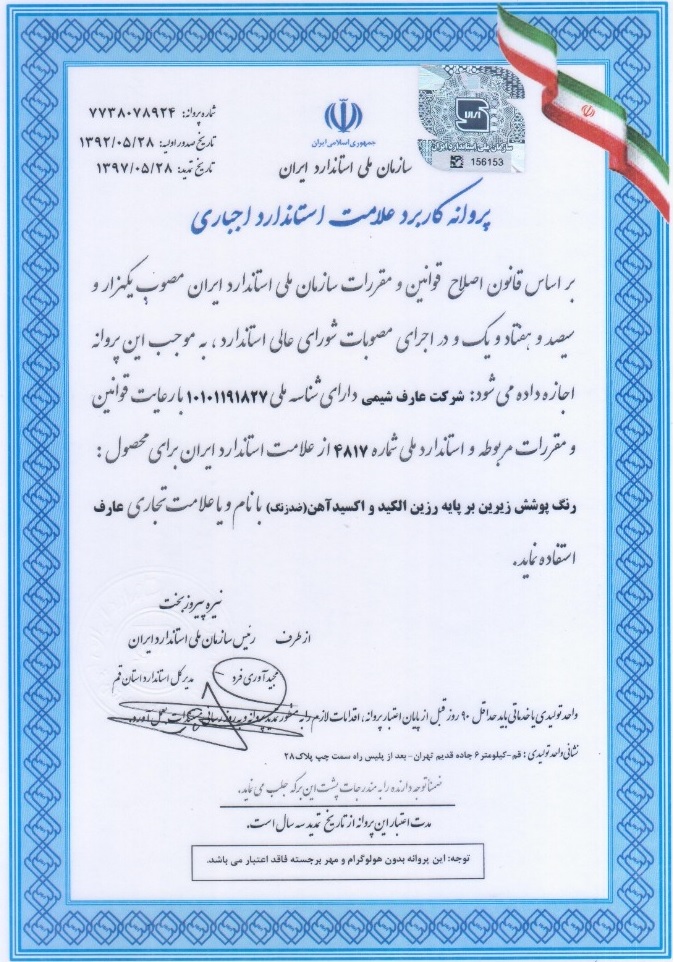 شماره پروانه: ۷۷۳۸۰۷۸۹۲۴
تاریخ صدور اولیه: ۱۳۹۲/۰۵/۲۸
تاریخ تمدید: ۱۳۹۷/۰۵/۲۸
جمهوری اسلامی ایران
سازمان ملی استاندارد ایران
سازمان ملی استاندارد ایران
156153
پروانه کاربرد علامت استاندارد اجباری
بر اساس قانون اصلاح قوانین و مقررات سازمان ملی استاندارد ایران مصوب یکهزار و
سیصد و هفتاد و یک و در اجرای مصوبات شورای عالی استاندارد، به موجب این پروانه
اجازه داده می شود: شرکت عارف شیمی دارای شناسه ملی ۱۰۱۰۱۱۹۱۸۲۷ با رعایت قوانین
و مقررات مربوطه و استاندارد ملی شماره ۴۸۱۷ از علامت استاندارد ایران برای محصول:
رنگ پوشش زیرین بر پایه رزین الکید و اکسیدآهن(ضدزنگ) با نام و یا علامت تجاری عارف
استفاده نماید.
نیره پیروزبخت
رئیس سازمان ملی استاندارد ایران از طرف
مجید آوری فرد
مدیر کل استاندارد استان قم
واحد تولیدی یا خدماتی باید حداقل ۹۰ روز قبل از پایان اعتبار پروانه، اقدامات لازم را به منظور تمدید پروانه و به روز رسانی بعمل آورد.
نشانی واحد تولیدی: قم-کیلومتر۶ جاده قدیم تهران- بعد از پلیس راه سمت چپ پلاک۲۸
ضمنا توجه دارنده را به مندرجات پشت این برگه جلب می نماید.
مدت اعتبار این پروانه از تاریخ تمدید سه سال است.
توجه: این پروانه بدون هولوگرام و مهر برجسته فاقد اعتبار می باشد.